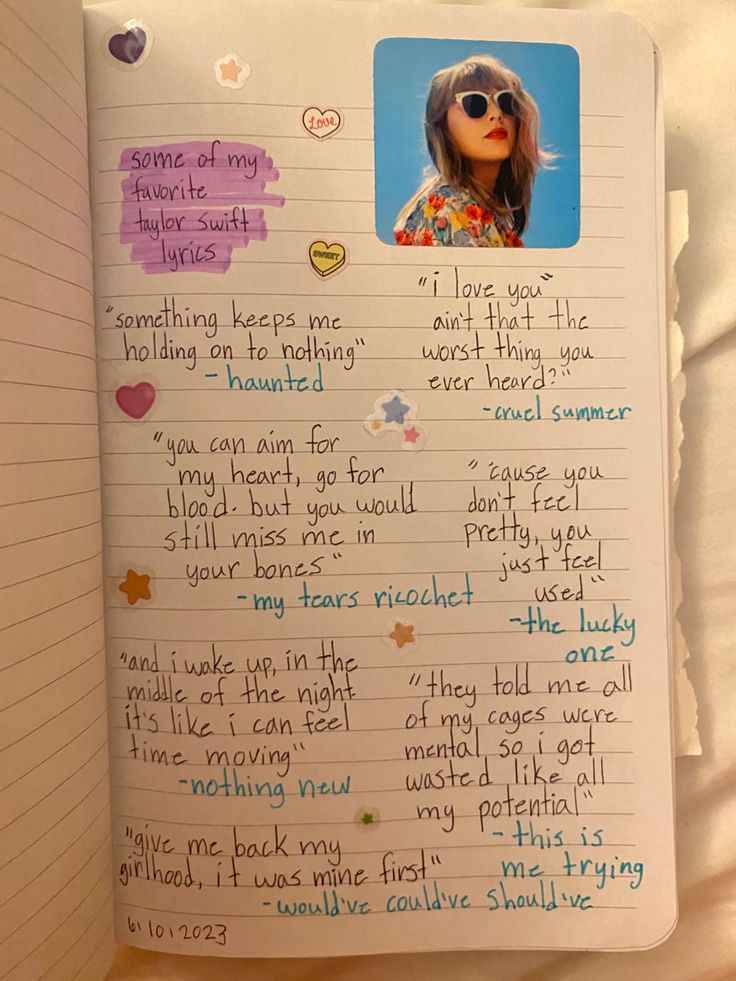 Love
some of my
favorite
taylor swift
lyrics
SWEET
"something keeps me
holding on to nothing"
- haunted
"i love you"
ain't that the
worst thing you
ever heard?"
-cruel summer
"you can aim for
my heart, go for
blood. but you would
still miss me in
your bones"
- my tears ricochet
"'cause you
don't feel
pretty, you
just feel
used"
-the lucky
one
"and i wake up, in the
middle of the night
it's like i can feel
time moving"
-nothing new
"they told me all
of my cages were
mental so i got
wasted like all
my potential"
- this is
me trying
"give me back my
girlhood, it was mine first"
- would've could've should've
6/10/2023